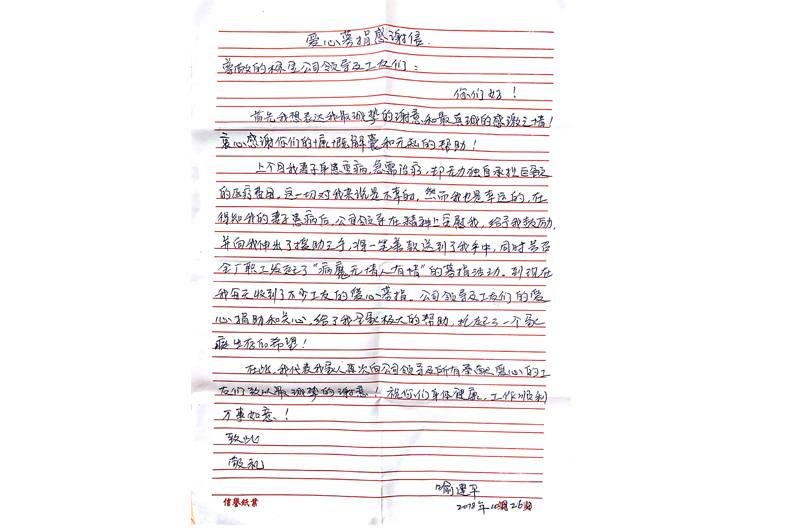 爱心募捐感谢信.
尊敬的 公司领导及工友们:
你们好!
首先我想表达我最诚挚的谢意和最真诚的感激之情!
衷心感谢你们的慷慨解囊和无私的帮助!
上个月我妻子身患重病,急需治疗,却无力独自承担巨额
的医疗费用。这一切对我来说是不幸的,然而我也是幸运的,在
得知我的妻子患病后,公司领导在精神上安慰我,给予我鼓励,
并向我伸出了援助之手,将一笔善款送到了我手中,同时号召
全厂职工发起了“病魔无情人有情”的募捐活动。到现在
我每天收到了不少工友的爱心募捐。公司领导及工友们的爱
心捐助和关心,给了我全家极大的帮助,托起了一个家
庭生存的希望!
在此,我代表我家人再次向公司领导及所有奉献爱心的工
友们致以最诚挚的谢意!祝你们身体健康,工作顺利
万事如意.!
致此
敬礼
喻 平
2018年10月26日
信誉纸业